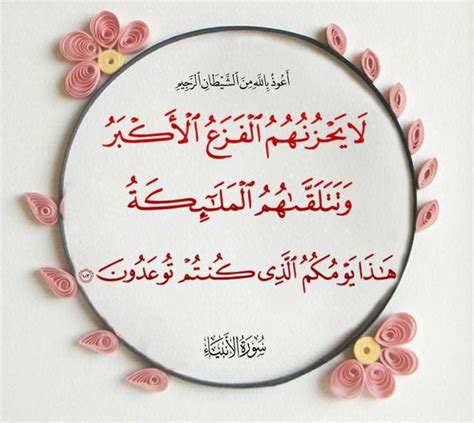 أَعُوذُ بِاللَّهِ مِنَ الشَّيْطَانِ الرَّجِيمِ
لَا يَحْزُنُهُمُ ٱلْفَزَعُ ٱلْأَكْبَرُ
وَتَتَلَقَّىٰهُمُ ٱلْمَلَـٰٓئِكَةُ
هَـٰذَا يَوْمُكُمُ ٱلَّذِى كُنتُمْ تُوعَدُونَ ۝١٠٣
سُورَةُ الْأَنْبِيَاءِ